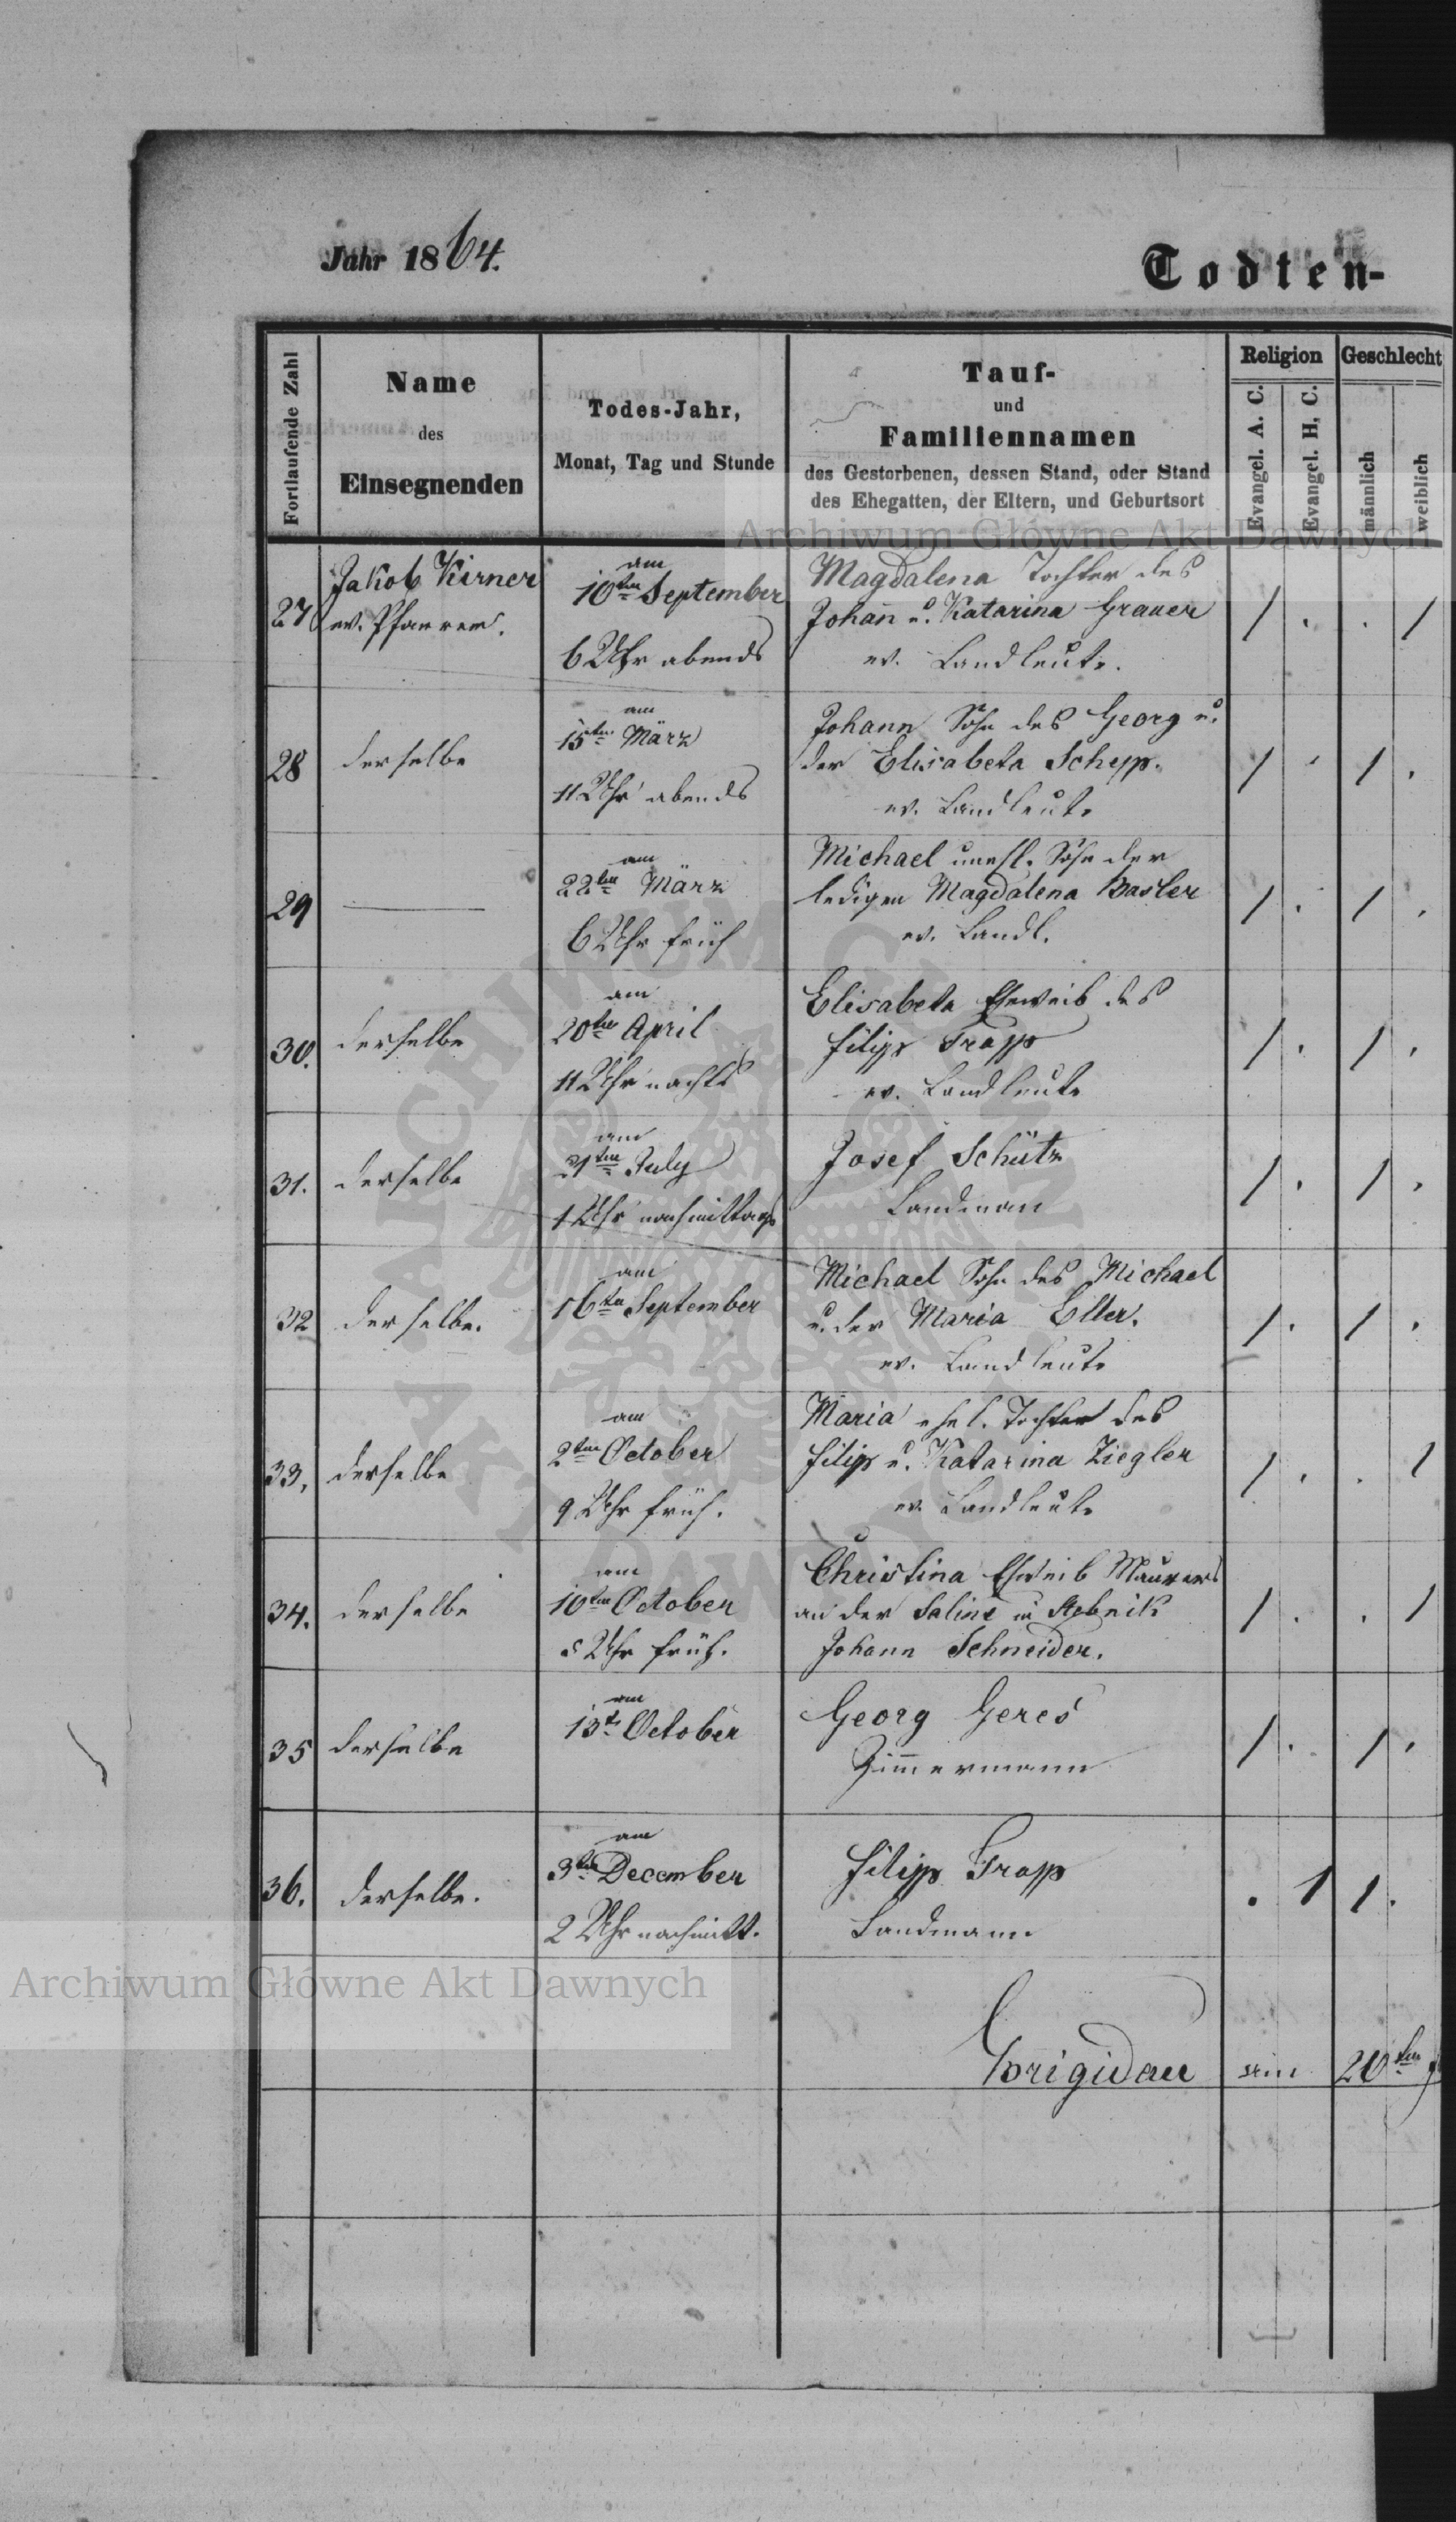 Jahr 1864.
Todten-
Fortlaufende Zahl
Name
des
Einsegnenden
Todes-Jahr,
Monat, Tag und Stunde
Tauf-
und
Familiennamen
des Gestorbenen, dessen Stand, oder Stand
des Ehegatten, der Eltern, und Geburtsort
Religion
Evangel. A. C.
Evangel. H. C.
Geschlecht
männlich
weiblich
27
Jakob Kirner
ev. Pfarrer.
am
10ten September
6 Uhr abends
Magdalena Tochter des
Johan̄ u. Katarina Grauer
ev. Landleute.
/ . . /
28
derselbe
am
15ten März
11 Uhr abends
Johann Sohn des Georg u.
der Elisabeta Schepp.
ev. Landleute
/ . / .
29
—
am
22ten März
6 Uhr früh
Michael unehl. Sohn der
ledigen Magdalena Basler
ev. Landl.
/ . / .
30.
derselbe
am
20ten April
11 Uhr nachts
Elisabeta Eheweib des
Filipp Trapp
ev. Landleute
/ . / .
31.
derselbe
am
21ten July
1 Uhr nachmittags
Josef Schütz
Landman
/ . / .
32
derselbe.
am
16ten September
Michael Sohn des Michael
u. der Maria Eller.
ev. Landleute
/ . / .
33.
derselbe
am
2ten October
9 Uhr früh.
Maria ehel. Tochter des
Filip u. Katarina Ziegler
ev. Landleute
/ . . /
34.
derselbe
am
10ten October
5 Uhr früh.
Christina Eheweib Maurers
an der Saline in Stebnik
Johann Schneider.
/ . . /
35
derselbe
am
13t October
Georg Geres
Zim̄ermann
/ . / .
36.
derselbe.
am
3ten December
2 Uhr nachmitt.
Filipp Trapp
Landmann
. 1 1 .
Brigidau am 20ten
Archiwum Główne Akt Dawnych
Archiwum Główne Akt Dawnych
ARCHIWUM GŁÓWNE AKT DAWNYCH